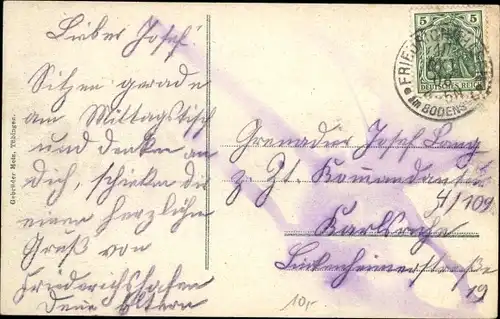 Lieber Josef!
Sitzen gerade
am Mittagstisch
und denken an
Dich, schicken dir
einen herzlichen
Gruß von
Friedrichshafen
Deine Eltern
Grenadier Josef Lang
z. Zt.
4/109
Karlsruhe
19
10,-
Gebrüder Metz, Tübingen.
5 5
DEUTSCHES REICH
FRIEDRICHSHAFEN
AM BODENSEE